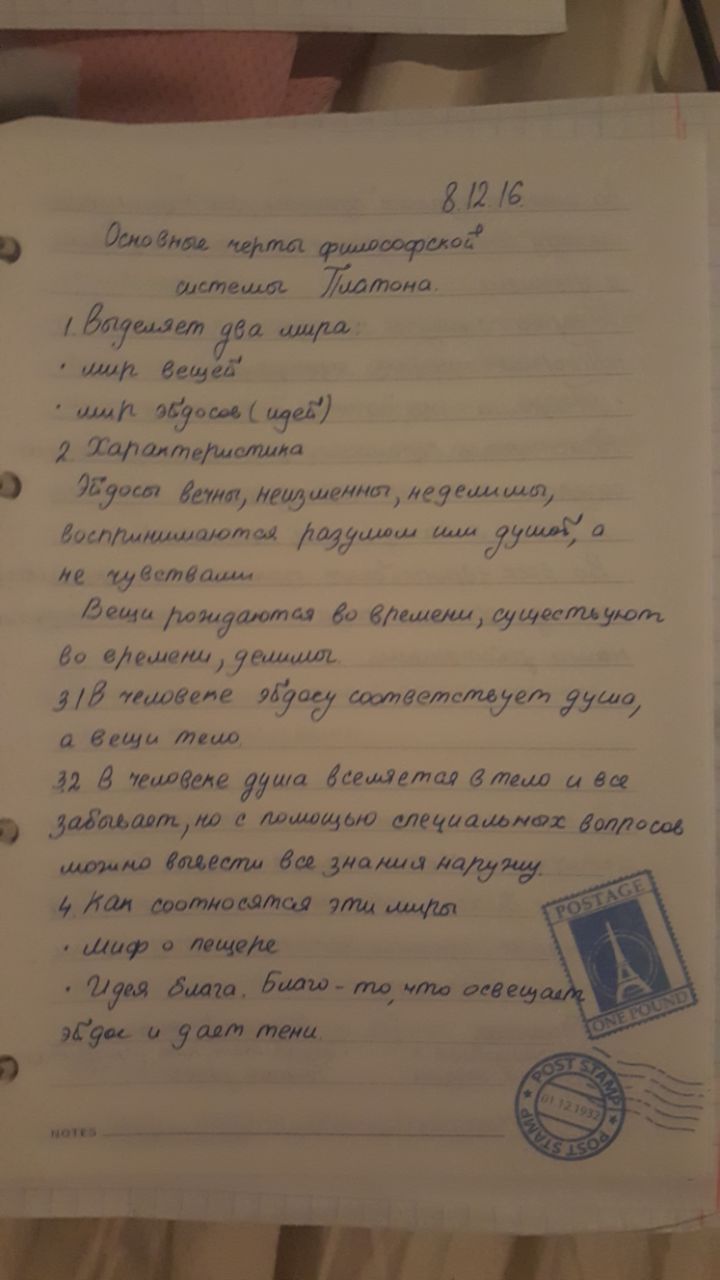 8.12.16.
Основные черты философской
системы Платона.
1. Выделяет два мира:
· мир вещей
· мир эйдосов (идей)
2. Характеристика
Эйдосы вечны, неизменны, неделимы,
воспринимаются разумом или душой, а
не чувствами
Вещи рождаются во времени, существуют
во времени, делимы.
3.1 В человеке эйдосу соответствует душа,
а вещи тело.
3.2 В человеке душа вселяется в тело и все
забывает, но с помощью специальных вопросов
можно вывести все знания наружу.
4. Как соотносятся эти миры
· Миф о пещере
· Идея блага. Благо - то, что освещает
эйдос и дает тени.
POSTAGE
ONE POUND
POST STAMP
01.12.1932
POST STAMP
NOTES